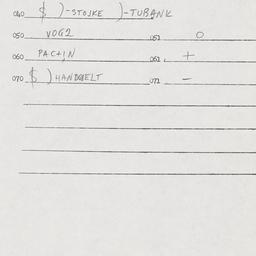 040 $ )-STOJKE )-TUBANK
050 VOG2 051 O
060 PACTIN 061 +
070 $ ) HANDGELT 071 -